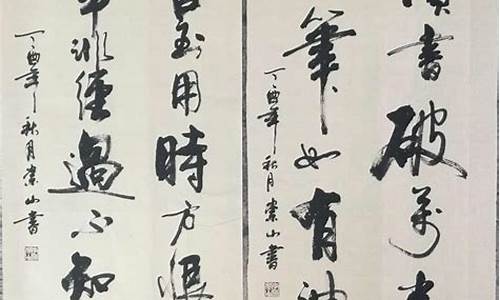 讀書破萬卷
筆如有神
丁酉年秋月崇山書
書到用時方恨
事非經過不知
丁酉年秋月崇山書